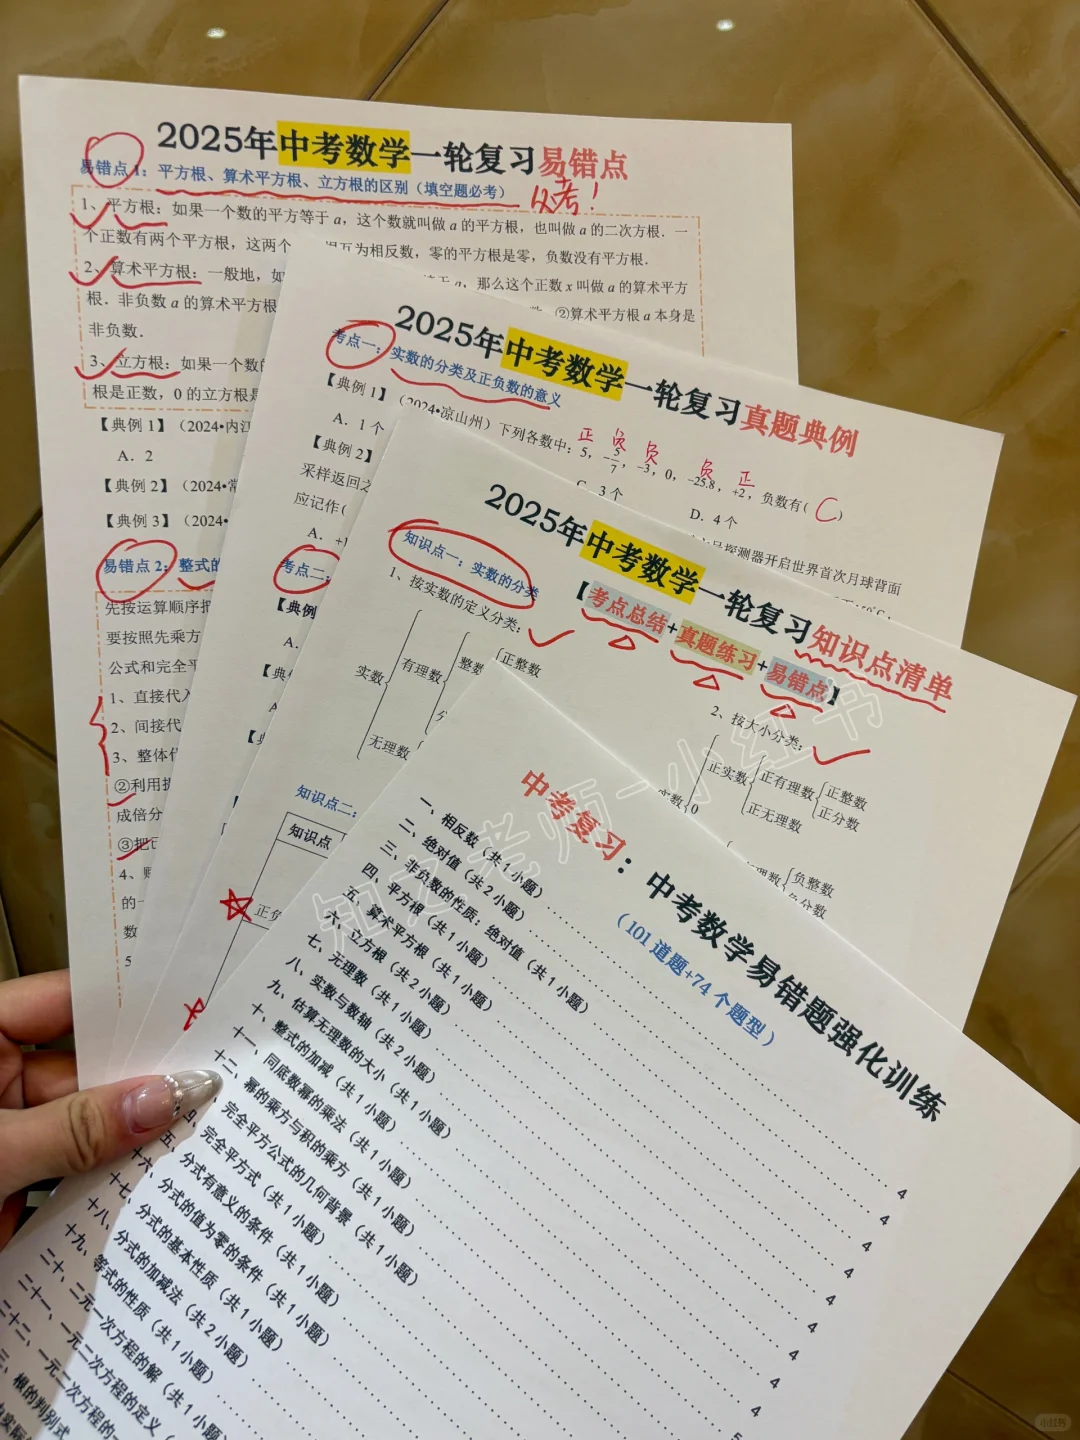 2025年中考数学一轮复习易错点
易错点1：平方根、算术平方根、立方根的区别（填空题必考）
必考！
1、平方根：如果一个数的平方等于 a，这个数就叫做 a 的平方根，也叫做 a 的二次方根．一
个正数有两个平方根，这两个
互为相反数，零的平方根是零，负数没有平方根．
2、算术平方根：一般地，如
a，那么这个正数 x 叫做 a 的算术平方
根．非负数 a 的算术平方根
②算术平方根 a 本身是
非负数．
3、立方根：如果一个数的
根是正数，0 的立方根是
【典例1】（2024•内江
A．2
【典例2】（2024•常
【典例3】（2024•
易错点2：整式的
先按运算顺序把
要按照先乘方
公式和完全平
1、直接代入
2、间接代
3、整体代
②利用提
成倍分
③把已
4、
的一
数
5
2025年中考数学一轮复习真题典例
考点一：实数的分类及正负数的意义
正 负 负 负 正
【典例1】（2024•凉山州）下列各数中：5，-5/7，-3，0，-25.8，+2，负数有（ C ）
A．1 个
C．3 个
D．4 个
【典例2】
探测器开启世界首次月球背面
采样返回之
应记作（
A．+1
考点二：
【典例
A．
2025年中考数学一轮复习知识点清单
【考点总结+真题练习+易错点】
知识点一：实数的分类
1、按实数的定义分类：
实数
有理数
整数
正整数
分
无理数
2、按大小分类：
实数
正实数
正有理数
正整数
正分数
正无理数
0
负整数
负分数
知识点二：
知识点
正负
中考复习：中考数学易错题强化训练
（101 道题+74 个题型）
一、相反数（共 1 小题）
4
二、绝对值（共 2 小题）
4
三、非负数的性质：绝对值（共 1 小题）
4
四、平方根（共 1 小题）
4
五、算术平方根（共 1 小题）
4
六、立方根（共 2 小题）
4
七、无理数（共 1 小题）
4
八、实数与数轴（共 2 小题）
4
九、估算无理数的大小（共 1 小题）
4
十、整式的加减（共 1 小题）
5
十一、同底数幂的乘法（共 1 小题）
十二、幂的乘方与积的乘方（共 1 小题）
完全平方公式的几何背景（共 1 小题）
四、完全平方式（共 1 小题）
五、分式有意义的条件（共 1 小题）
十六、分式的值为零的条件（共 1 小题）
十七、分式的基本性质（共 1 小题）
十八、分式的加减法（共 2 小题）
十九、等式的性质（共 1 小题）
二十、二元一次方程的解（共 1 小题）
二十一、一元二次方程的定义（共 1
二十二、一元二次方程的一
三、根的判别式
知之老师-小红书
小红书